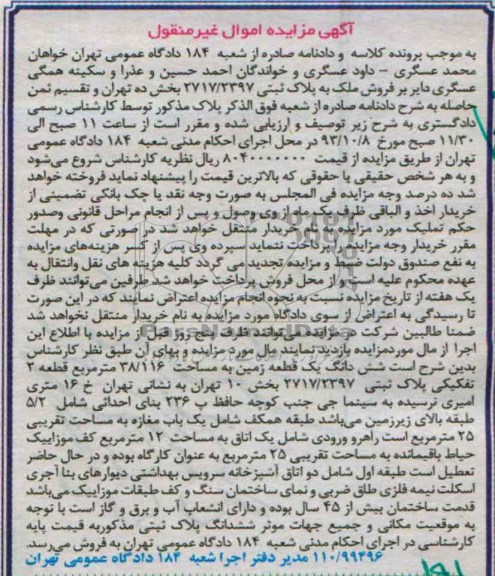 آگهی مزایده اموال غیرمنقول
به موجب پرونده کلاسه و دادنامه صادره از شعبه ۱۸۴ دادگاه عمومی تهران خواهان
محمد عسگری - داود عسگری و خواندگان احمد حسین و عذرا و سکینه همگی
عسگری دایر بر فروش ملک به پلاک ثبتی ۲۷۱۷/۲۳۹۷ بخش ده تهران و تقسیم ثمن
حاصله به شرح دادنامه صادره از شعبه فوق الذکر پلاک مذکور توسط کارشناس رسمی
دادگستری به شرح زیر توصیف و ارزیابی شده و مقرر است از ساعت ۱۱ صبح الی
۱۱/۳۰ صبح مورخ ۹۳/۱۰/۸ در محل اجرای احکام مدنی شعبه ۱۸۴ دادگاه عمومی
تهران از طریق مزایده از قیمت ۸۰۴۰۰۰۰۰۰۰ ریال نظریه کارشناس شروع می‌شود
و به هر شخص حقیقی یا حقوقی که بالاترین قیمت را پیشنهاد نماید فروخته خواهد
شد ده درصد وجه مزایده فی المجلس به صورت وجه نقد یا چک بانکی تضمینی از
خریدار اخذ و الباقی ظرف یکماه از وی وصول و پس از انجام مراحل قانونی وصدور
حکم تملیک مورد مزایده به نام خریدار منتقل خواهد شد در صورتی که در مهلت
مقرر خریدار وجه مزایده را پرداخت ننماید سپرده وی پس از کسر هزینه‌های مزایده
به نفع صندوق دولت ضبط و مزایده تجدید می گردد کلیه هزینه های نقل وانتقال به
عهده محکوم علیه است و از محل فروش پرداخت خواهد شد طرفین می‌توانند ظرف
یک هفته از تاریخ مزایده نسبت به نحوه انجام مزایده اعتراض نمایند که در این صورت
تا رسیدگی به اعتراض از سوی دادگاه مورد مزایده به نام خریدار منتقل نخواهد شد
ضمنا طالبین شرکت در مزایده می‌توانند ظرف پنج روز قبل از مزایده با اطلاع این
اجرا از مال موردمزایده بازدید نمایند مال مورد مزایده و بهای آن طبق نظر کارشناس
بدین شرح است شش دانگ یک قطعه زمین به مساحت ۳۸/۱۱۶ مترمربع قطعه ۲
تفکیکی پلاک ثبتی ۲۷۱۷/۲۳۹۷ بخش ۱۰ تهران به نشانی تهران خ ۱۶ متری
امیری نرسیده به سینما جی جنب کوچه حافظ پ ۲۳۶ بنای احداثی شامل ۵/۲
طبقه بالای زیرزمین می‌باشد طبقه همکف شامل یک باب مغازه به مساحت تقریبی
۲۵ مترمربع است راهرو ورودی شامل یک اتاق به مساحت ۱۲ مترمربع کف موزاییک
حیاط باقیمانده به مساحت تقریبی ۲۵ مترمربع به عنوان کارگاه بوده و در حال حاضر
تعطیل است طبقه اول شامل دو اتاق آشپزخانه سرویس بهداشتی دیوارهای بنا آجری
اسکلت نیمه فلزی طاق ضربی و نمای ساختمان سنگ و کف طبقات موزاییک می‌باشد
قدمت ساختمان بیش از ۴۵ سال بوده و دارای انشعاب آب و برق و گاز است با توجه
به موقعیت مکانی و جمیع جهات موثر ششدانگ پلاک ثبتی مذکوربه قیمت پایه
کارشناسی در اجرای احکام مدنی شعبه ۱۸۴ دادگاه عمومی تهران به فروش می‌رسد.
۱۱۰/۹۹۴۹۶ مدیر دفتر اجرا شعبه ۱۸۴ دادگاه عمومی تهران